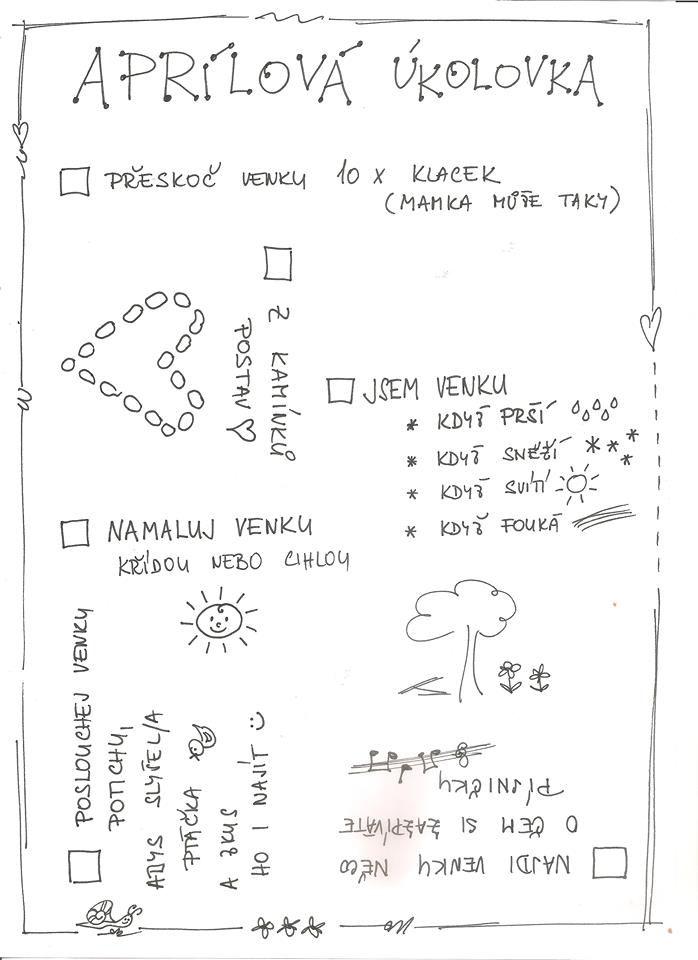 APRÍLOVÁ ÚKOLOVKA
PŘESKOČ VENKU 10 X KLACEK
(MAMKA MŮŽE TAKY)
Z KAMÍNKŮ
POSTAV ♡
JSEM VENKU
* KDYŽ PRŠÍ
* KDYŽ SNĚŽÍ
* KDYŽ SVÍTÍ
* KDYŽ FOUKÁ
NAMALUJ VENKU
KŘÍDOU NEBO CIHLOU
POSLOUCHEJ VENKU
POTICHU,
ABYS SLYŠEL/A
PTÁČKA
A ZKUS
HO I NAJÍT :)
NAJDI VENKU NĚCO
O ČEM SI ZAZPÍVÁTE
PÍSNIČKY